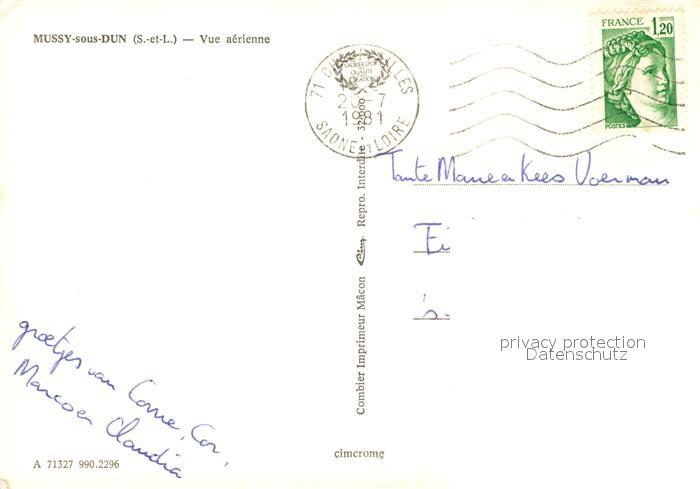 MUSSY-sous-DUN (S.-et-L.) — Vue aérienne
FRANCE 1,20
POSTES
71
20-7
1981
SAONE ET LOIRE
Tante Marie en Kees Voerman
Ei
's-
groetjes van Corrie, Cor,
Marco en Claudia
Combier Imprimeur Mâcon Cim Repro. Interdite - 323000
privacy protection
Datenschutz
cimcrome
A 71327 990.2296